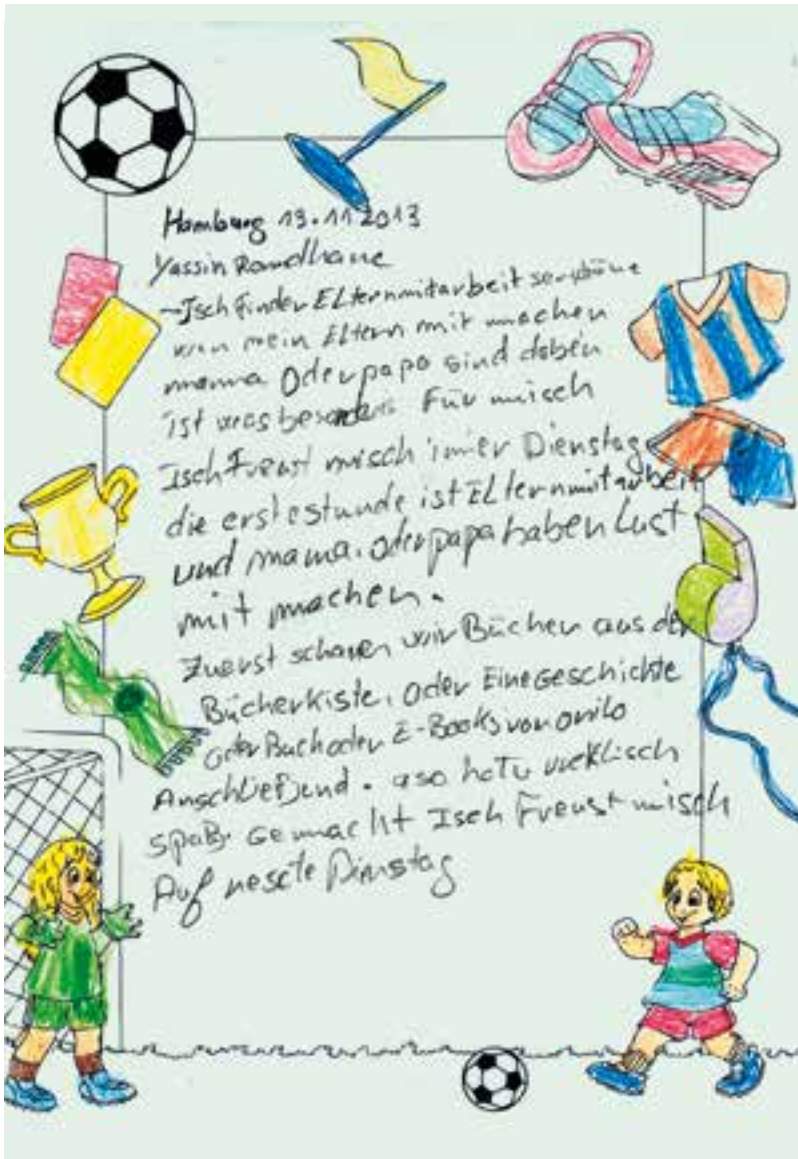 Hamburg 19.11.2013
Yassin Romdhane
-Isch finder Elternmitarbeit
wan mein Eltern mit machen
mama Oder papa sind daben
ist was besonders Für misch
Isch Freust misch imer Dienstag
die erste stunde ist Elternmitarbeit
und mama. oder papa haben Lust
mit machen.
Zuerst schauen wir Bücher aus der
Bücherkiste. oder Eine Geschichte
oder Buch oder E-Books von onilo
Anschließend. aso hate wirklisch
spaß. gemacht Isch Freust misch
Auf neste Dinstag